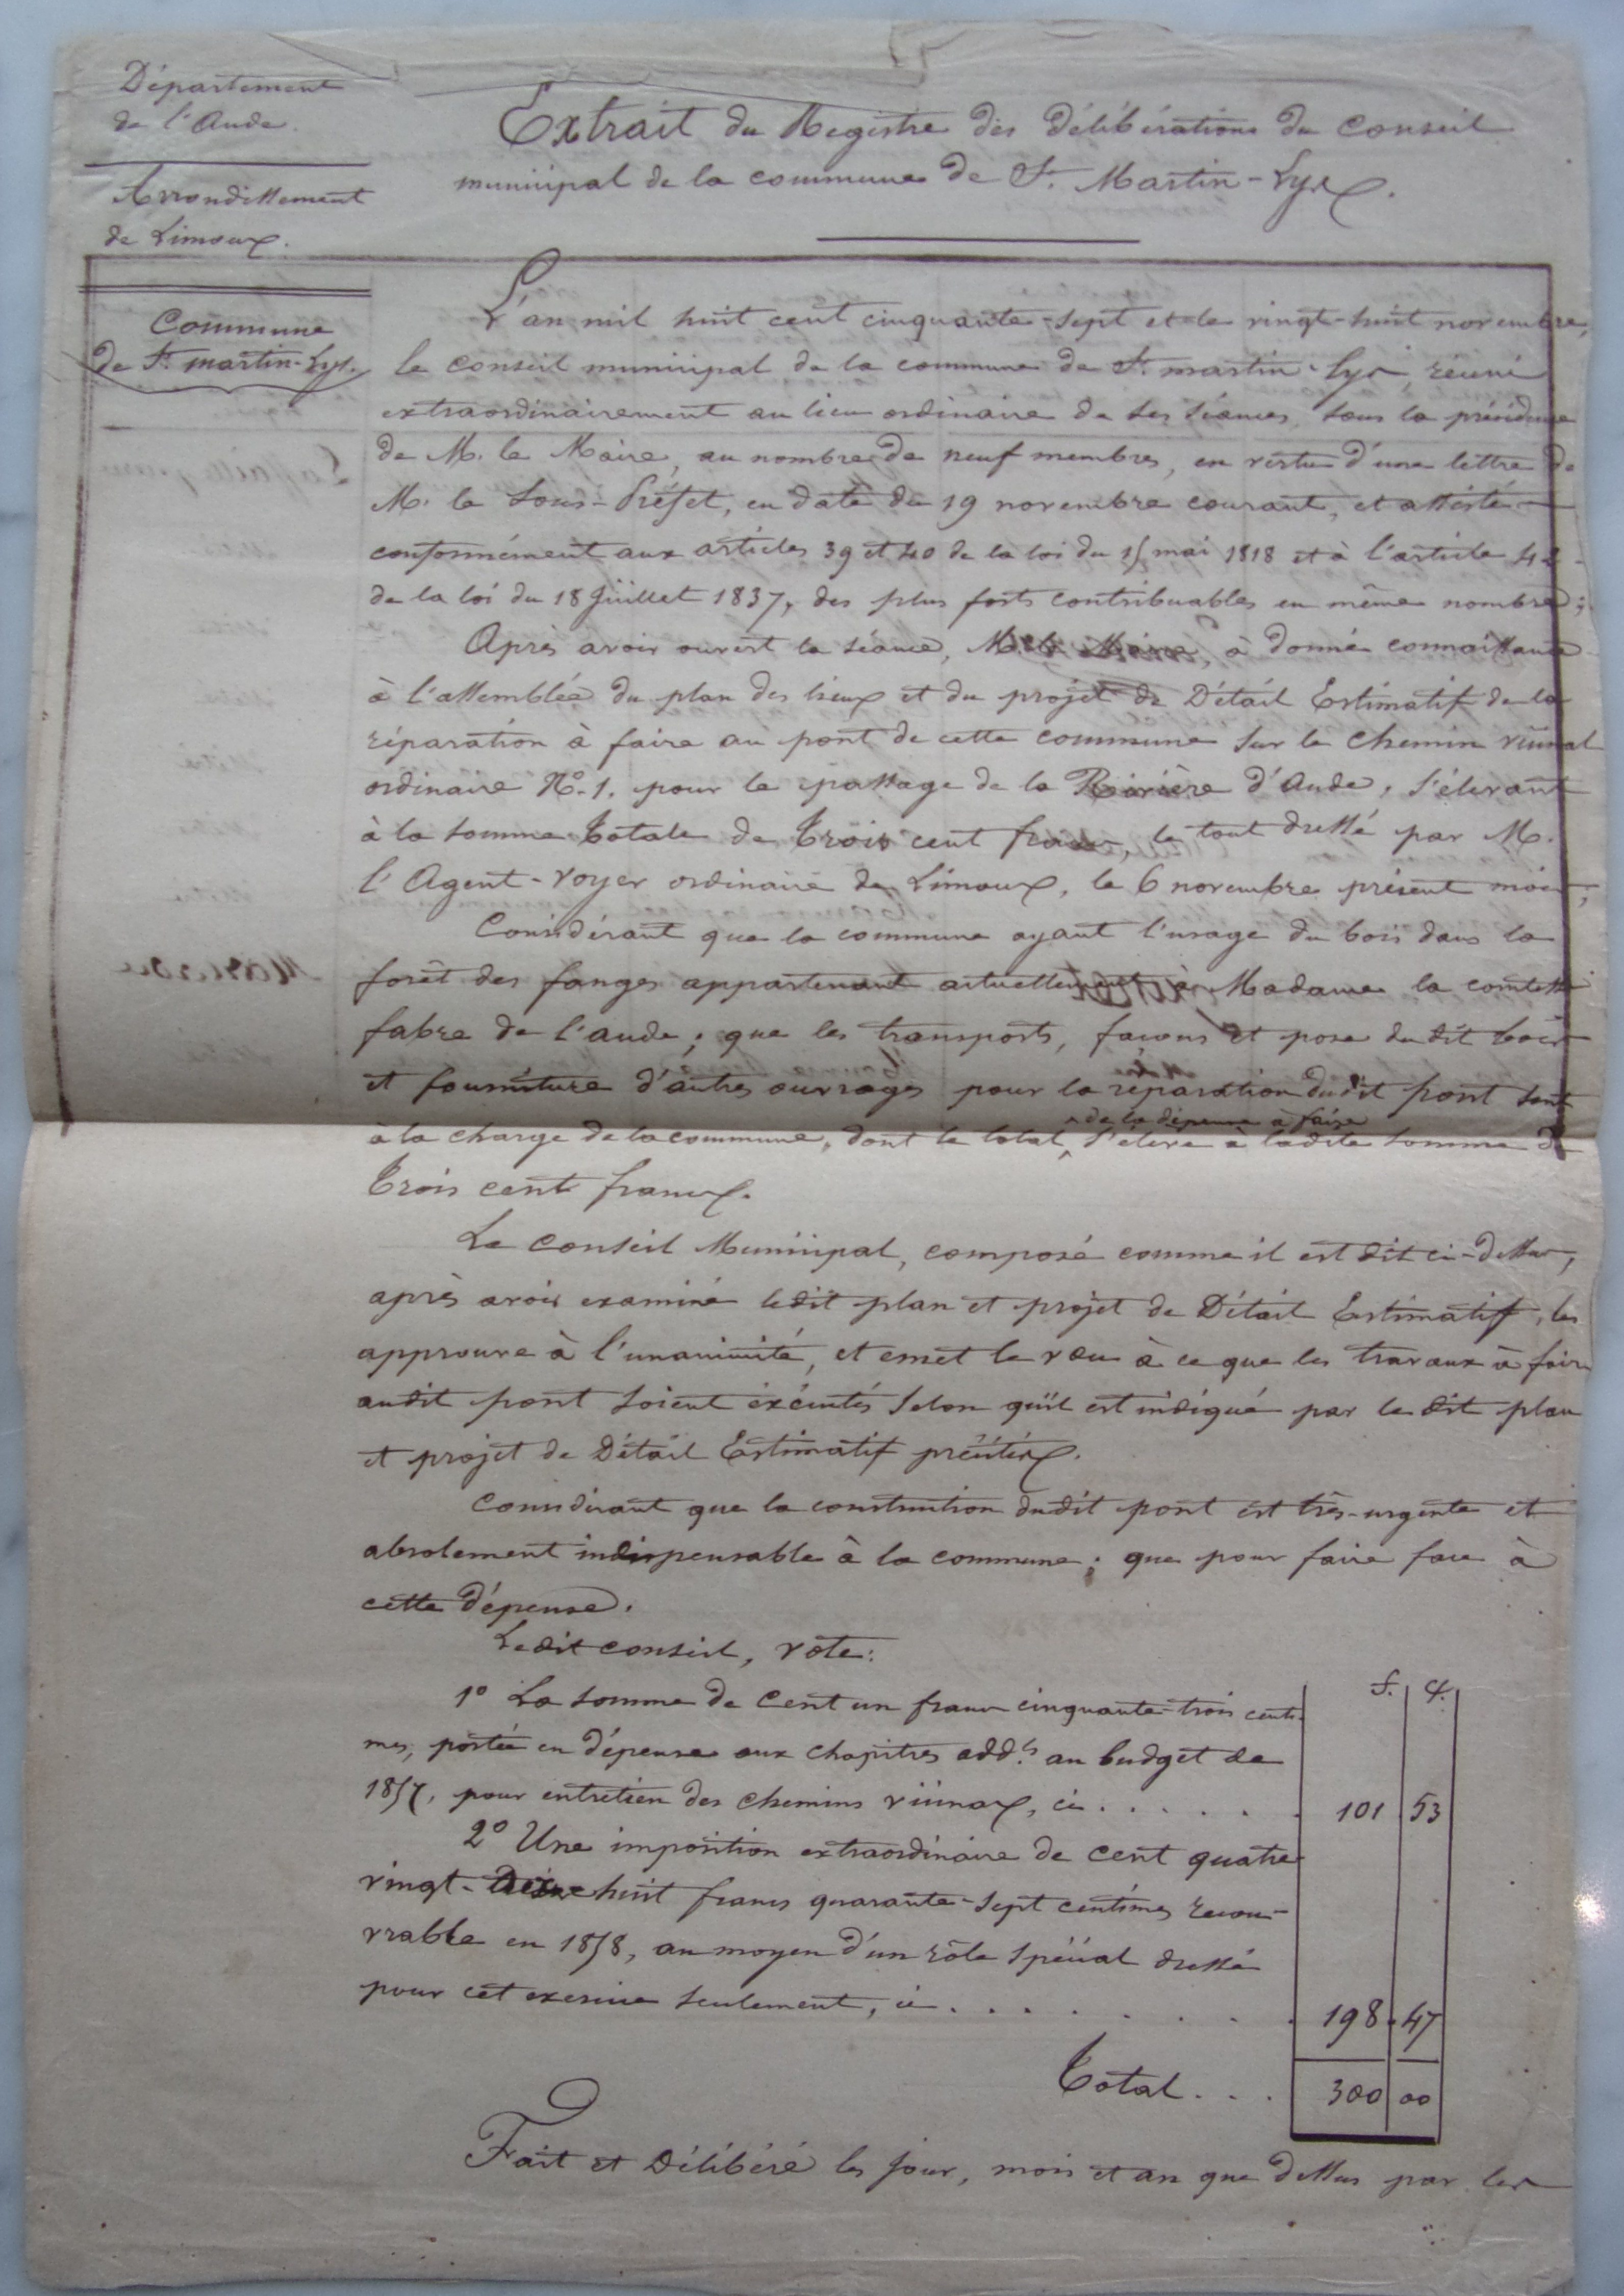 Département
de l'Aude.
Arrondissement
de Limoux.
Commune
de St. martin-Lys.
Extrait du Registre des délibérations du Conseil
municipal de la commune de St. Martin-Lys.
L'an mil huit cent cinquante-sept et le vingt-huit novembre,
le conseil municipal de la commune de St. martin-Lys, réuni
extraordinairement au lieu ordinaire de ses séances, sous la présidence
de M. le Maire, au nombre de neuf membres, en vertu d'une lettre de
M. le Sous-Préfet, en date du 19 novembre courant, et assisté
conformément aux articles 39 et 40 de la loi du 15 mai 1818 et à l'article 42
de la loi du 18 Juillet 1837, des plus forts contribuables en même nombre;
Après avoir ouvert la séance, M. le Maire, a donné connaissance
à l'assemblée du plan des lieux et du projet de Détail Estimatif de la
réparation à faire au pont de cette commune sur le chemin vicinal
ordinaire No. 1. pour le passage de la Rivière d'Aude, s'élevant
à la somme totale de trois cent francs, le tout dressé par M.
l'Agent-voyer ordinaire de Limoux, le 6 novembre présent mois;
Considérant que la commune ayant l'usage du bois dans la
forêt des fanges appartenant actuellement à Madame la comtesse
fabre de l'aude; que les transports, façons et pose du dit bois
et fourniture d'autres ouvrages pour la réparation dudit pont sont
à la charge de la commune, dont le total ^ de la dépense à faire s'élève à ladite somme de
trois cent francs.
Le Conseil Municipal, composé comme il est dit ci-dessus,
après avoir examiné ledit plan et projet de Détail Estimatif, les
approuve à l'unanimité, et emet le vœu à ce que les travaux à faire
audit pont soient éxécutés selon qu'il est indiqué par le dit plan
et projet de Détail Estimatif précités.
Considérant que la construction dudit pont est très-urgente et
absolement indispensable à la commune; que pour faire face à
cette dépense.
Ledit conseil, vote:
f. c.
1o La somme de Cent un francs cinquante-trois centi-
mes, portée en dépense aux chapitres addls au budget de
1857, pour entretien des chemins vicinaux, ci . . . . . . 101 53
2o Une imposition extraordinaire de cent quatre
vingt-dix huit francs quarante-sept centimes recou-
vrable en 1858, au moyen d'un rôle spécial dressé
pour cet exercice seulement, ci . . . . . . . . 198 . 47
Total . . . 300 00
Fait et Délibéré les jour, mois et an que dessus par les